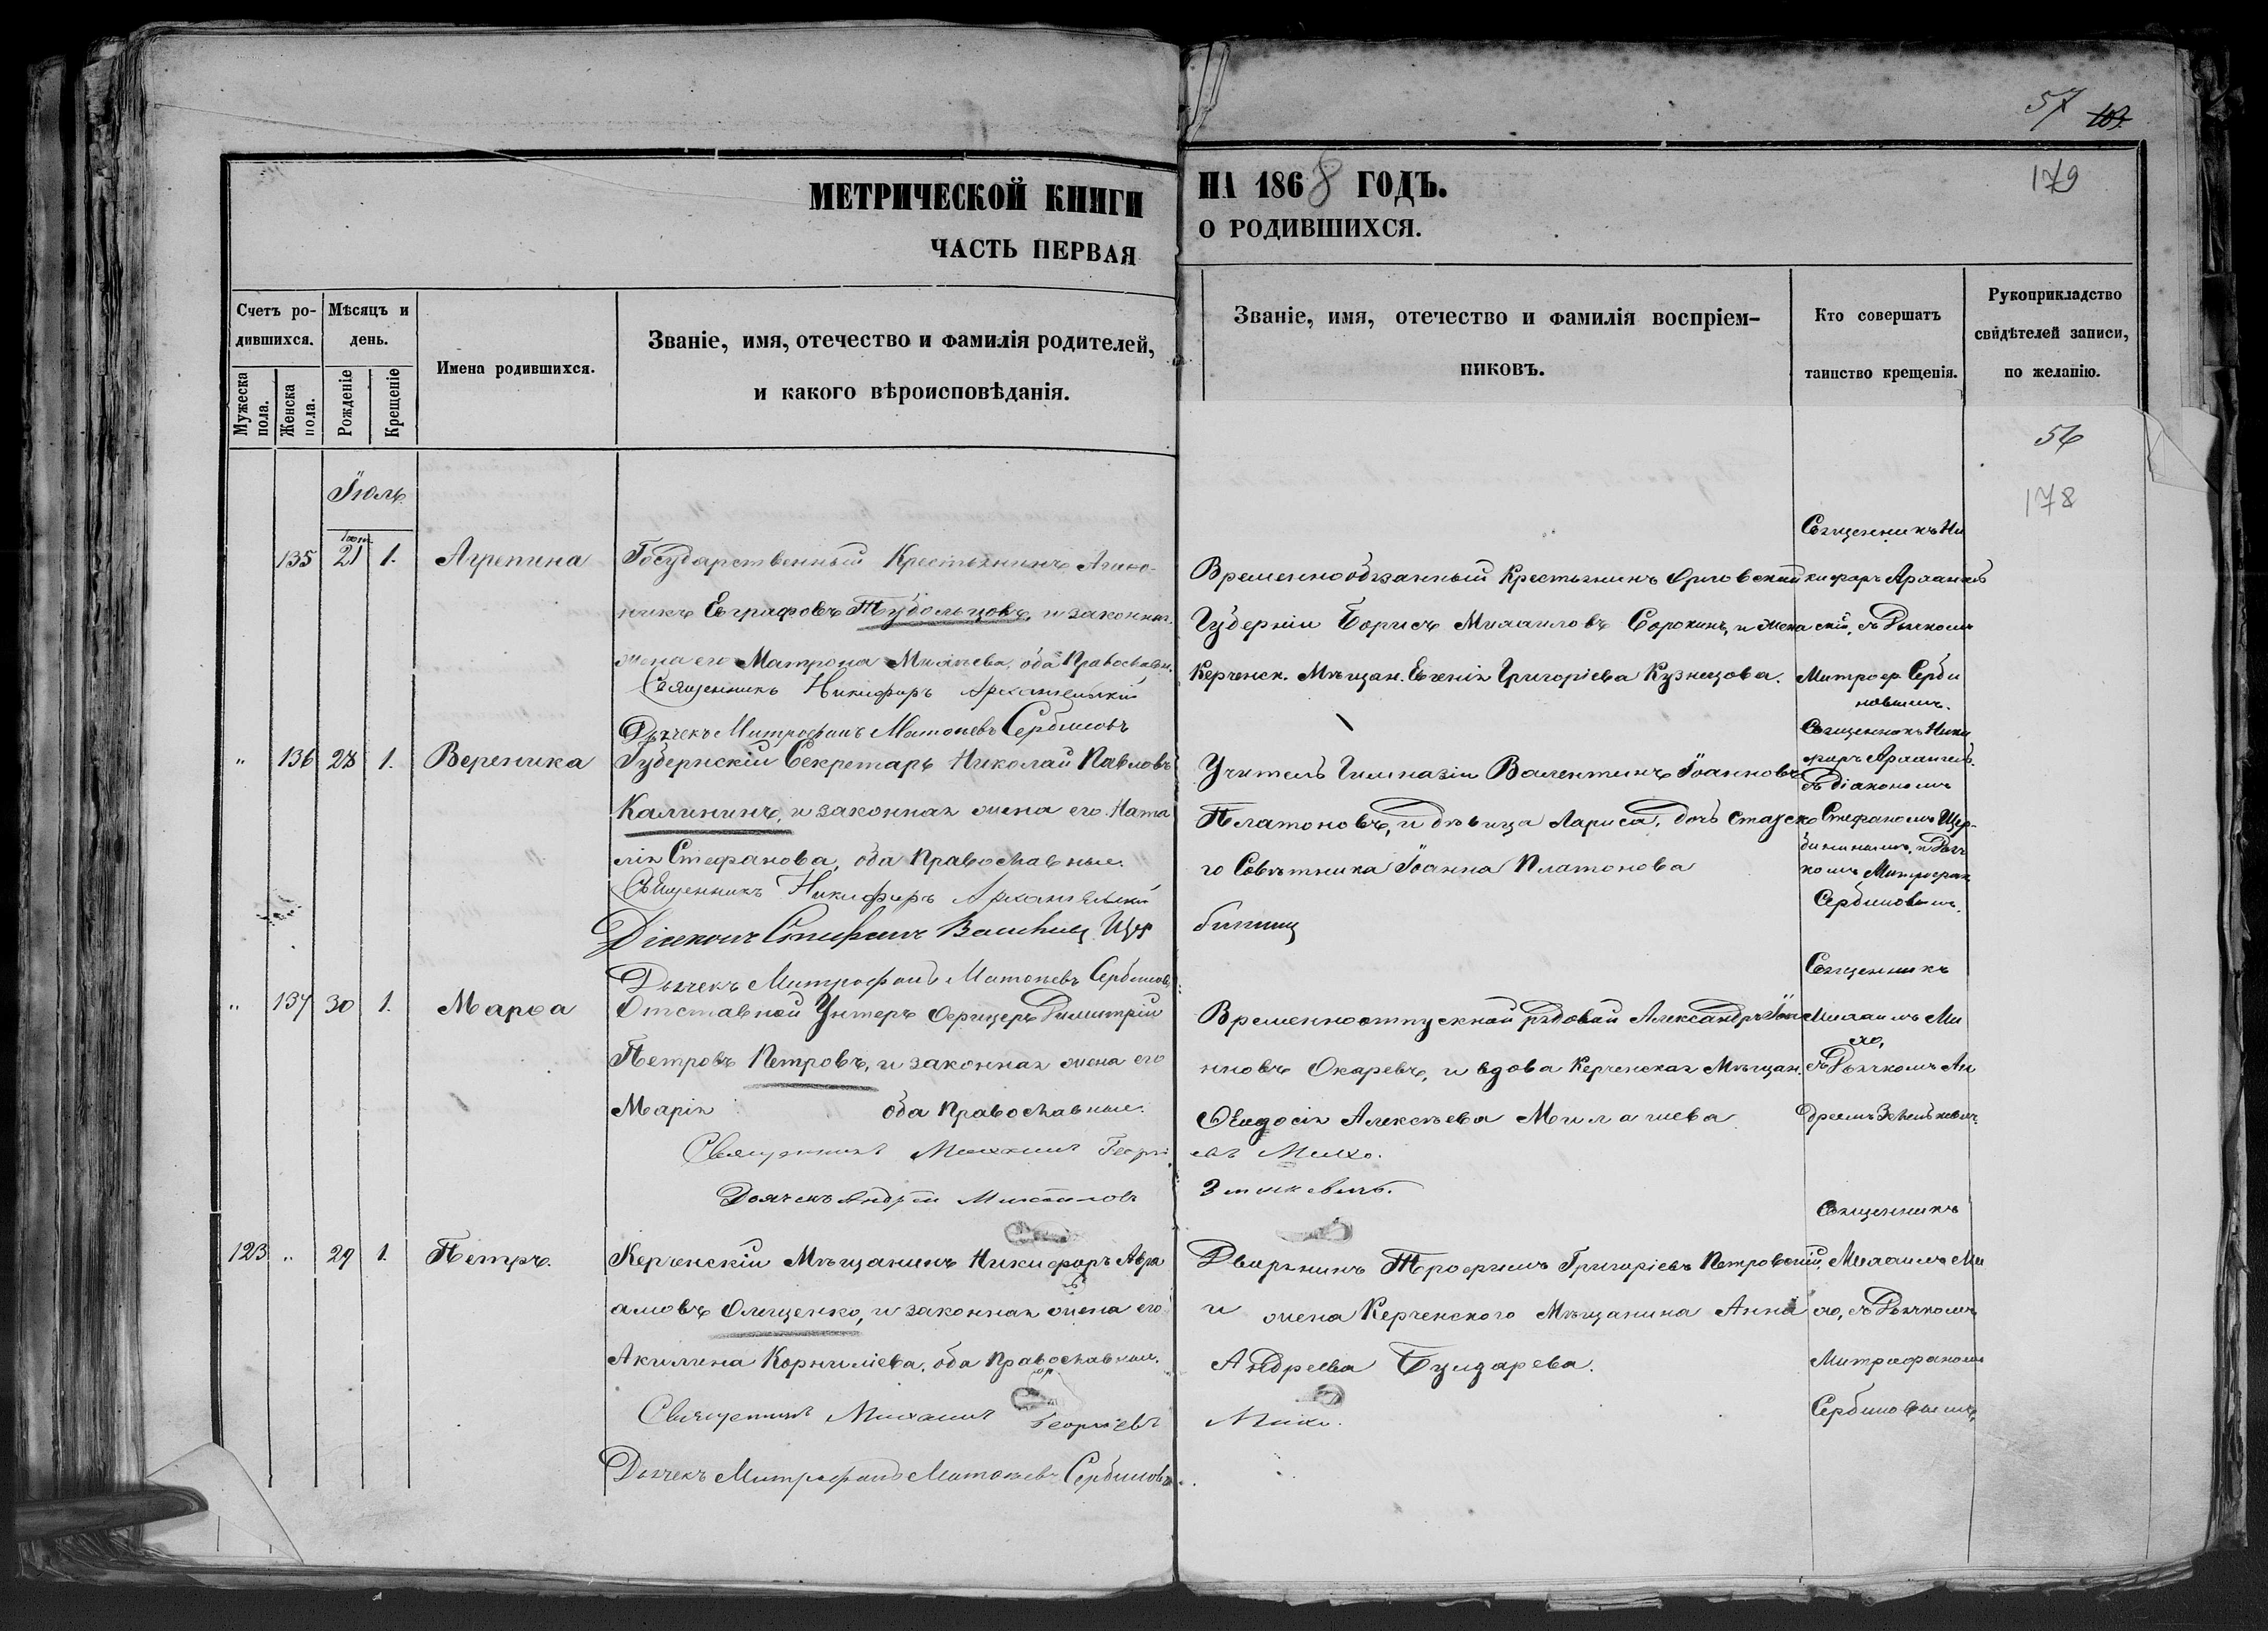 57 109.
МЕТРИЧЕСКОЙ КНИГИ НА 1868 ГОДЪ.
179
ЧАСТЬ ПЕРВАЯ О РОДИВШИХСЯ.
Счетъ ро-
дившихся.
Мужеска пола.
Женска пола.
Мѣсяцъ и
день.
Рожденіе
Крещеніе
Имена родившихся.
Званіе, имя, отечество и фамилія родителей,
и какого вѣроисповѣданія.
Званіе, имя, отечество и фамилія воспріем-
никовъ.
Кто совершатъ
таинство крещенія.
Рукоприкладство
свидѣтелей записи,
по желанію.
56
178
Іюль
135 21 1. Агрепина
Государственный Крестьянинъ
никъ Евграфовъ Тубольцовъ, и законная
жена его Матрона оба Православн.
Священникъ Никифоръ Архангельскій
Дьячекъ Митрофанъ Матѳеевъ Сербиновъ
Временнообязанный Крестьянинъ Орловской
Губерніи Борисъ Михаиловъ Сорокинъ, и жена
Керченск. Мѣщан. Евгенія Григоріева Кузнецова.
Священникъ Ни
кифоръ Архангель
скій, съ Дьячкомъ
Митроф. Серби
новымъ.
" 136 28 1. Вереника
Губернскій Секретарь Николай Павловъ
Калининъ, и законная жена его Ната
лія Стефанова, оба Православные.
Священникъ Никифоръ Архангельскій
Діаконъ Стефанъ Щер
бининъ
Дьячекъ Митрофанъ Матѳеевъ Сербиновъ
Учитель Гимназіи Валентинъ Іоанновъ
Платоновъ, и дѣвица Лариса, дочь Статско
го Совѣтника Іоанна Платонова
Священникъ Ники
форъ Архангель.
съ діакономъ
Стефаномъ Щер-
бининымъ, и Дьяч
комъ Митрофан
Сербиновымъ.
" 137 30 1. Марѳа
Отставной Унтеръ Офицеръ Димитрій
Петровъ Петровъ, и законная жена его
Марія оба Православные.
Священникъ Михаилъ Георгі
евъ Михо.
Дьячекъ Андрей Михайловъ
Зенькевичъ.
Временноотпускной рядовой Александръ Іоа
нновъ Окаревъ, и вдова Керченская Мѣщан.
Ѳеодосія Алексѣева Милачиева
Священникъ
Михаилъ Ми
хо,
съ Дьячкомъ Ан
дреемъ Зенькевич.
123 " 29 1. Петръ.
Керченскій Мѣщанинъ Никифоръ Авра
амовъ Олещенко, и законная жена его
Акилина Корниліева, оба Православные.
Священникъ Михаилъ Георгіевъ
Михо.
Дьячекъ Митрофанъ Матѳеевъ Сербиновъ.
Дворянинъ Трофимъ Григоріевъ Петровскій,
и жена Керченского Мѣщанина Анна
Андреева Булдарева.
Священникъ
Михаилъ Ми
хо, съ Дьячкомъ
Митрофаномъ
Сербиновымъ,